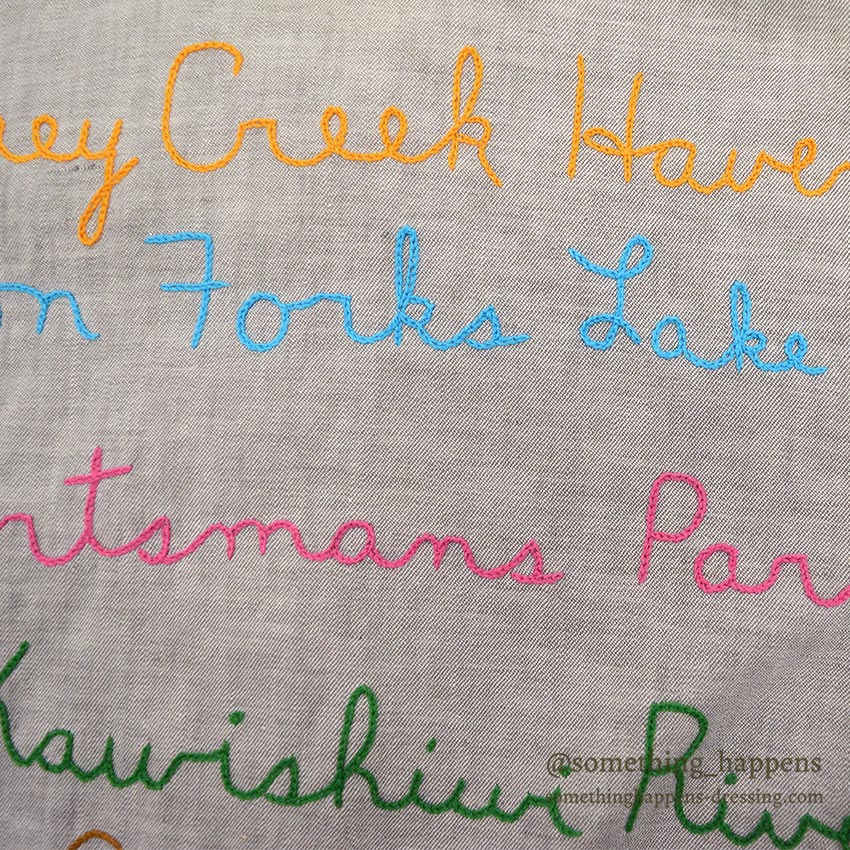 ey Creek Haven
on Forks Lake
rtsmans Par
Kawishiwi Riv
@something_happens
somethinghappens-dressing.com